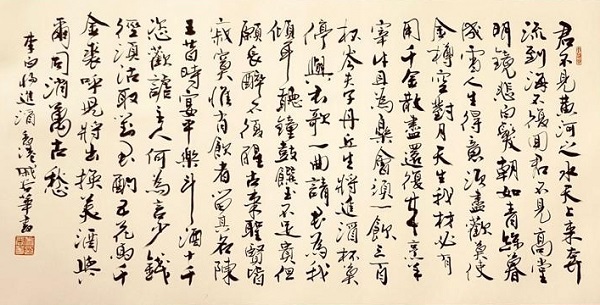 君不見黃河之水天上來奔
流到海不復回君不見高堂
明鏡悲白髮朝如青絲暮
成雪人生得意須盡歡莫使
金樽空對月天生我材必有
用千金散盡還復來烹羊
宰牛且為樂會須一飲三百
杯岑夫子丹丘生將進酒杯莫
停與君歌一曲請君為我
傾耳聽鐘鼓饌玉不足貴但
願長醉不復醒古來聖賢皆
寂寞惟有飲者留其名陳
王昔時宴平樂斗酒十千
恣歡謔主人何為言少錢
徑須沽取對君酌五花馬千
金裘呼兒將出換美酒與
爾同消萬古愁
李白將進酒